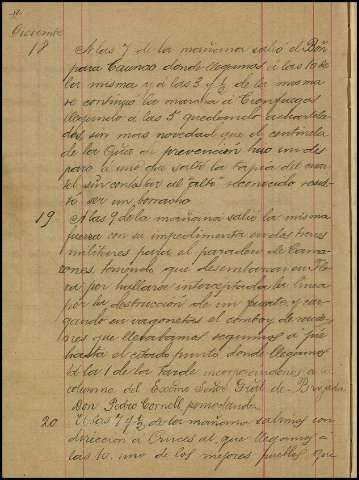 Diciembre
18 A las 7 de la mañana salió el Bón
para Caunao donde llegamos á las 10 de
la misma y á las 3 y ½ de la misma
se continuó la marcha á Cienfuegos
llegando á las 5 quedando acuartela
dos, sin mas novedad que el centinela
de la Gúa de prevencion hizo un dis
paro a uno que saltó la tapia del cuar
tel sin contestar al alto reconocido resul
tó ser un borracho
19 A las 9 de la mañana salió la misma
fuerza con su impedimenta en dos trenes
militares para el paradero de Cama
rones, teniendo que desembarcar en
por hallarse interceptada la linea
por la destruccion de un puente, y car
gando en vagonetas el convoy de
res que llebabamos seguimos á pié
hasta el citado punto donde llegamos
á la 1 de la tarde incorporandonos a la
columna del Excmo Señor Gral de Brigada
Don Pedro Cornell
20 A las 7 y ½ de la mañana salimos con
direccion a Cruces al que llegamos a
las 10. uno de los mejores pueblos que